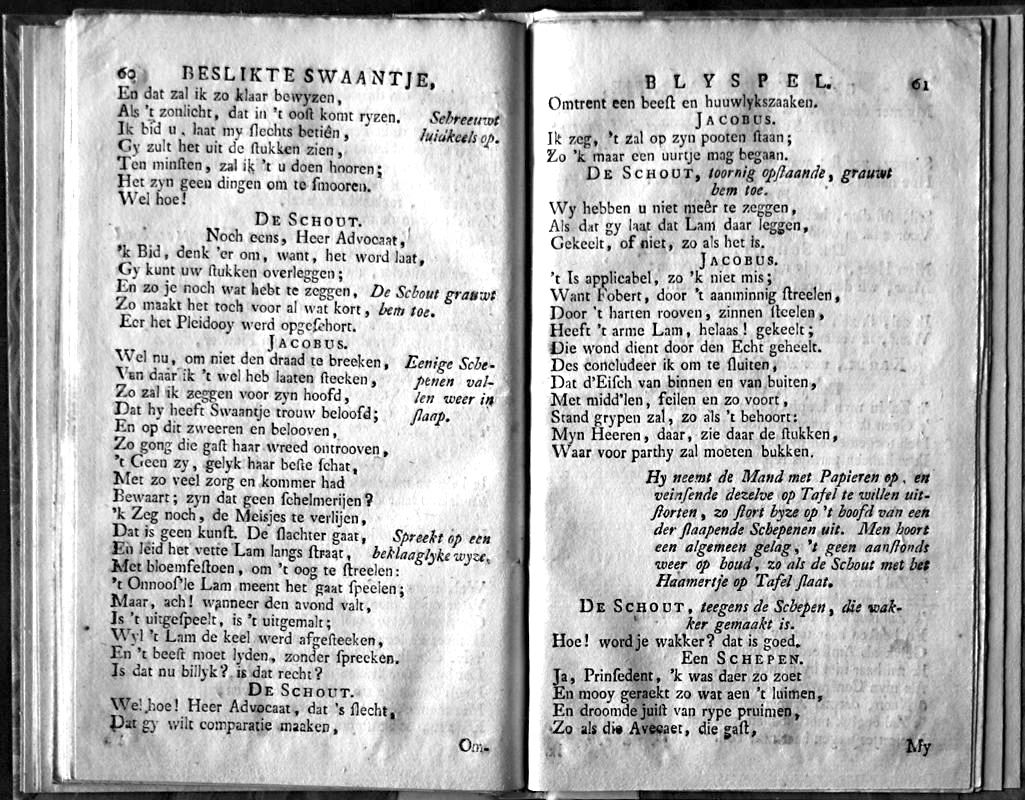 60 BESLIKTE SWAANTJE,
En dat zal ik zo klaar bewyzen,
Als 't zonlicht, dat in 't ooſt komt ryzen. Schreeuwt
Ik bid u, laat my ſlechts betiên, luidkeels op.
Gy zult het uit de ſtukken zien,
Ten minſten, zal ik 't u doen hooren;
Het zyn geen dingen om te ſmooren.
Wel hoe!
DE SCHOUT.
Noch eens, Heer Advocaat,
'k Bid, denk 'er om, want, het word laat,
Gy kunt uw ſtukken overleggen;
En zo je noch wat hebt te zeggen, De Schout grauwt
Zo maakt het toch voor al wat kort, hem toe.
Eer het Pleidooy werd opgeſchort.
JACOBUS.
Wel nu, om niet den draad te breeken, Eenige Sche-
Van daar ik 't wel heb laaten ſteeken, penen val-
Zo zal ik zeggen voor zyn hoofd, len weer in
Dat hy heeft Swaantje trouw beloofd; ſlaap.
En op dit zweeren en belooven,
Zo gong die gaſt haar wreed ontrooven,
't Geen zy, gelyk haar beſte ſchat,
Met zo veel zorg en kommer had
Bewaart; zyn dat geen ſchelmerijen?
'k Zeg noch, de Meisjes te verlijen,
Dat is geen kunſt. De ſlachter gaat, Spreekt op een
En leid het vette Lam langs ſtraat, beklaaglyke wyze.
Met bloemfeſtoen, om 't oog te ſtreelen:
't Onnooſ'le Lam meent het gaat ſpeelen;
Maar, ach! wanneer den avond valt,
Is 't uitgeſpeelt, is 't uitgemalt;
Wyl 't Lam de keel werd afgeſteeken,
En 't beeſt moet lyden, zonder ſpreeken.
Is dat nu billyk? is dat recht?
DE SCHOUT.
Wel hoe! Heer Advocaat, dat 's ſlecht,
Dat gy wilt comparatie maaken,
Om-
BLYSPEL. 61
Omtrent een beeſt en huuwlykszaaken.
JACOBUS.
Ik zeg, 't zal op zyn pooten ſtaan;
Zo 'k maar een uurtje mag begaan.
DE SCHOUT, toornig opſtaande, grauwt
hem toe.
Wy hebben u niet meêr te zeggen,
Als dat gy laat dat Lam daar leggen,
Gekeelt, of niet, zo als het is.
JACOBUS.
't Is applicabel, zo 'k niet mis;
Want Fobert, door 't aanminnig ſtreelen,
Door 't harten rooven, zinnen ſteelen,
Heeft 't arme Lam, helaas! gekeelt;
Die wond dient door den Echt geheelt.
Des concludeer ik om te ſluiten,
Dat d'Eiſch van binnen en van buiten,
Met midd'len, feilen en zo voort,
Stand grypen zal, zo als 't behoort:
Myn Heeren, daar, zie daar de ſtukken,
Waar voor parthy zal moeten bukken.
Hy neemt de Mand met Papieren op, en
veinſende dezelve op Tafel te willen uit-
ſtorten, zo ſtort hyze op 't hoofd van een
der ſlaapende Schepenen uit. Men hoort
een algemeen gelag, 't geen aanſtonds
weer op houd, zo als de Schout met het
Haamertje op Tafel ſlaat.
DE SCHOUT, teegens de Schepen, die wak-
ker gemaakt is.
Hoe! word je wakker? dat is goed.
Een SCHEPEN.
Ja, Prinſedent, 'k was daer zo zoet
En mooy geraekt zo wat aen 't luimen,
En droomde juiſt van rype pruimen,
Zo als die Avecaet, die gaſt,
My